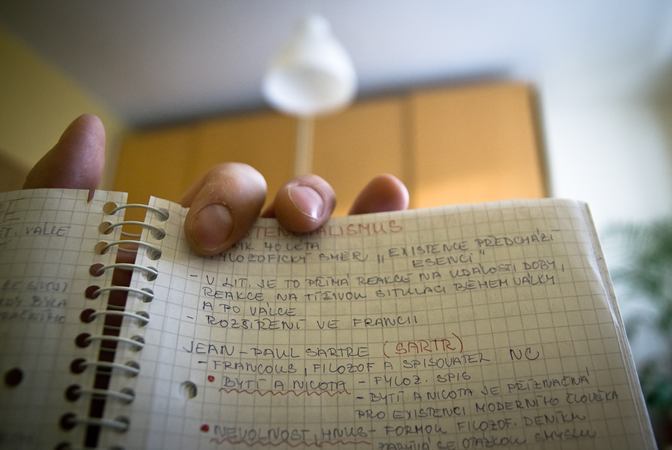 T. VALLE
TENCIALISMUS
NIK 40 LETA
FILOZOFICKÝ SMĚR „EXISTENCE PŘEDCHÁZÍ
ESENCI"
- V LIT. JE TO PŘÍMÁ REAKCE NA UDÁLOSTI DOBY,
REAKCE NA TÍŽIVOU SITUACI BĚHEM VÁLKY
A PO VÁLCE
- ROZŠÍŘENÍ VE FRANCII
JEAN-PAUL SARTRE (SARTR)
- FRANCOUS, FILOZOF A SPISOVATEL NC
• BYTÍ A NICOTA - FYLOZ. SPIS
- BYTÍ A NICOTA JE PŘÍZNAČNÁ
PRO EXISTENCI MODERNÍHO ČLOVĚKA
• NEVOLNOST, HNUS - FORMOU FILOZOF. DENÍKU
OTÁZKOU SMYSLU